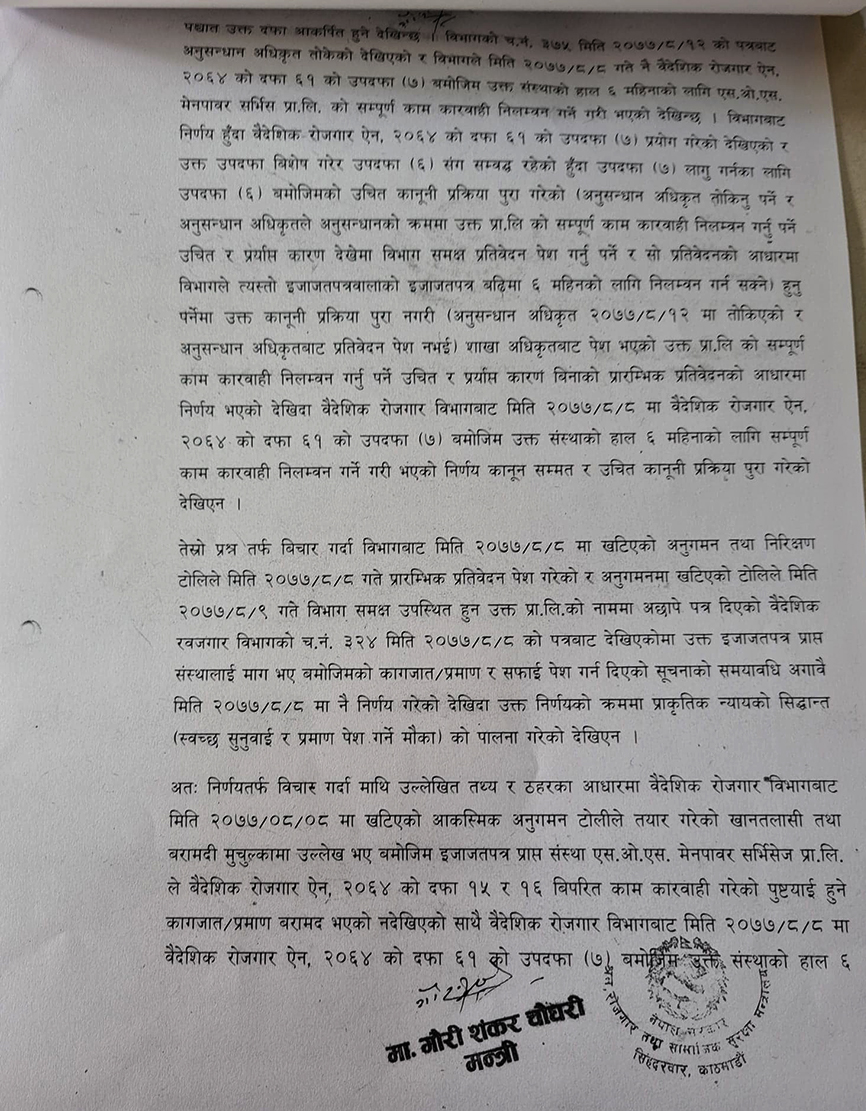 पश्चात उक्त दफा आकर्षित हुने देखिन्छ । विभागको च.नं. ३७५ मिति २०७७/८/१२ को पत्रबाट
अनुसन्धान अधिकृत तोकेको देखिएको र विभागले मिति २०७७/८/८ गते नै वैदेशिक रोजगार ऐन,
२०६४ को दफा ६१ को उपदफा (७) बमोजिम उक्त संस्थाको हाल ६ महिनाको लागि एस.ओ.एस.
मेनपावर सर्भिस प्रा.लि. को सम्पूर्ण काम कारवाही निलम्वन गर्ने गरी भएको देखिन्छ । विभागबाट
निर्णय हुँदा वैदेशिक रोजगार ऐन, २०६४ को दफा ६१ को उपदफा (७) प्रयोग गरेको देखिएको र
उक्त उपदफा विशेष गरेर उपदफा (६) संग सम्वद्ध रहेको हुँदा उपदफा (७) लागु गर्नका लागि
उपदफा (६) बमोजिमको उचित कानूनी प्रक्रिया पुरा गरेको (अनुसन्धान अधिकृत तोकिनु पर्ने र
अनुसन्धान अधिकृतले अनुसन्धानको क्रममा उक्त प्रा.लि को सम्पूर्ण काम कारवाही निलम्वन गर्नु पर्ने
उचित र प्रर्याप्त कारण देखेमा विभाग समक्ष प्रतिवेदन पेश गर्नु पर्ने र सो प्रतिवेदनको आधारमा
विभागले त्यस्तो इजाजतपत्रवालाको इजाजतपत्र बढिमा ६ महिनको लागि निलम्वन गर्न सक्ने) हुनु
पर्नेमा उक्त कानूनी प्रक्रिया पुरा नगरी (अनुसन्धान अधिकृत २०७७/८/१२ मा तोकिएको र
अनुसन्धान अधिकृतबाट प्रतिवेदन पेश नभई) शाखा अधिकृतबाट पेश भएको उक्त प्रा.लि को सम्पूर्ण
काम कारवाही निलम्वन गर्नु पर्ने उचित र प्रर्याप्त कारण बिनाको प्रारम्भिक प्रतिवेदनको आधारमा
निर्णय भएको देखिदा वैदेशिक रोजगार विभागबाट मिति २०७७/८/८ मा वैदेशिक रोजगार ऐन,
२०६४ को दफा ६१ को उपदफा (७) बमोजिम उक्त संस्थाको हाल ६ महिनाको लागि सम्पूर्ण
काम कारवाही निलम्वन गर्ने गरी भएको निर्णय कानून सम्मत र उचित कानूनी प्रक्रिया पुरा गरेको
देखिएन ।
तेस्रो प्रश्न तर्फ बिचार गर्दा विभागबाट मिति २०७७/८/८ मा खटिएको अनुगमन तथा निरिक्षण
टोलिले मिति २०७७/८/८ गते प्रारम्भिक प्रतिवेदन पेश गरेको र अनुगमनमा खटिएको टोलिले मिति
२०७७/८/९ गते विभाग समक्ष उपस्थित हुन उक्त प्रा.लि.को नाममा अछापे पत्र दिएको वैदेशिक
रवजगार विभागको च.नं. ३२४ मिति २०७७/८/८ को पत्रबाट देखिएकोमा उक्त इजाजतपत्र प्राप्त
संस्थालाई माग भए बमोजिमको कागजात/प्रमाण र सफाई पेश गर्न दिएको सूचनाको समयावधि अगावै
मिति २०७७/८/८ मा नै निर्णय गरेको देखिदा उक्त निर्णयको क्रममा प्राकृतिक न्यायको सिद्धान्त
(स्वच्छ सुनुवाई र प्रमाण पेश गर्ने मौका) को पालना गरेको देखिएन ।
अतः निर्णयतर्फ विचार गर्दा माथि उल्लेखित तथ्य र ठहरका आधारमा वैदेशिक रोजगार विभागबाट
मिति २०७७/०८/०८ मा खटिएको आकस्मिक अनुगमन टोलीले तयार गरेको खानतलासी तथा
बरामदी मुचुल्कामा उल्लेख भए बमोजिम इजाजतपत्र प्राप्त संस्था एस.ओ.एस. मेनपावर सर्भिसेज प्रा.लि.
ले वैदेशिक रोजगार ऐन, २०६४ को दफा १५ र १६ बिपरित काम कारवाही गरेको पुष्टयाई हुने
कागजात/प्रमाण बरामद भएको नदेखिएको साथै वैदेशिक रोजगार विभागबाट मिति २०७७/८/८ मा
वैदेशिक रोजगार ऐन, २०६४ को दफा ६१ को उपदफा (७) बमोजिम उक्त संस्थाको हाल ६
मा. गौरी शंकर चौधरी
मन्त्री
नेपाल सरकार
श्रम, रोजगार तथा सामाजिक सुरक्षा मन्त्रालय
सिंहदरवार, काठमाडौं